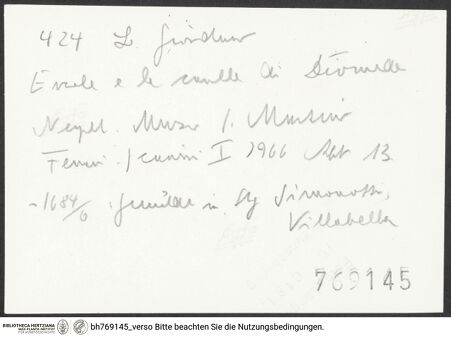 424 L. Giordano
Ercole e le cavalle di Diomede
Napoli. Museo S. Martino
Ferrari-Scavizzi I 1966 Abb 13
~1684/6 in Slg Simonotti,
Villabella
769145
BIBLIOTHECA HERTZIANA
MAX-PLANCK-INSTITUT
FÜR KUNSTGESCHICHTE
bh769145_verso Bitte beachten Sie die Nutzungsbedingungen.